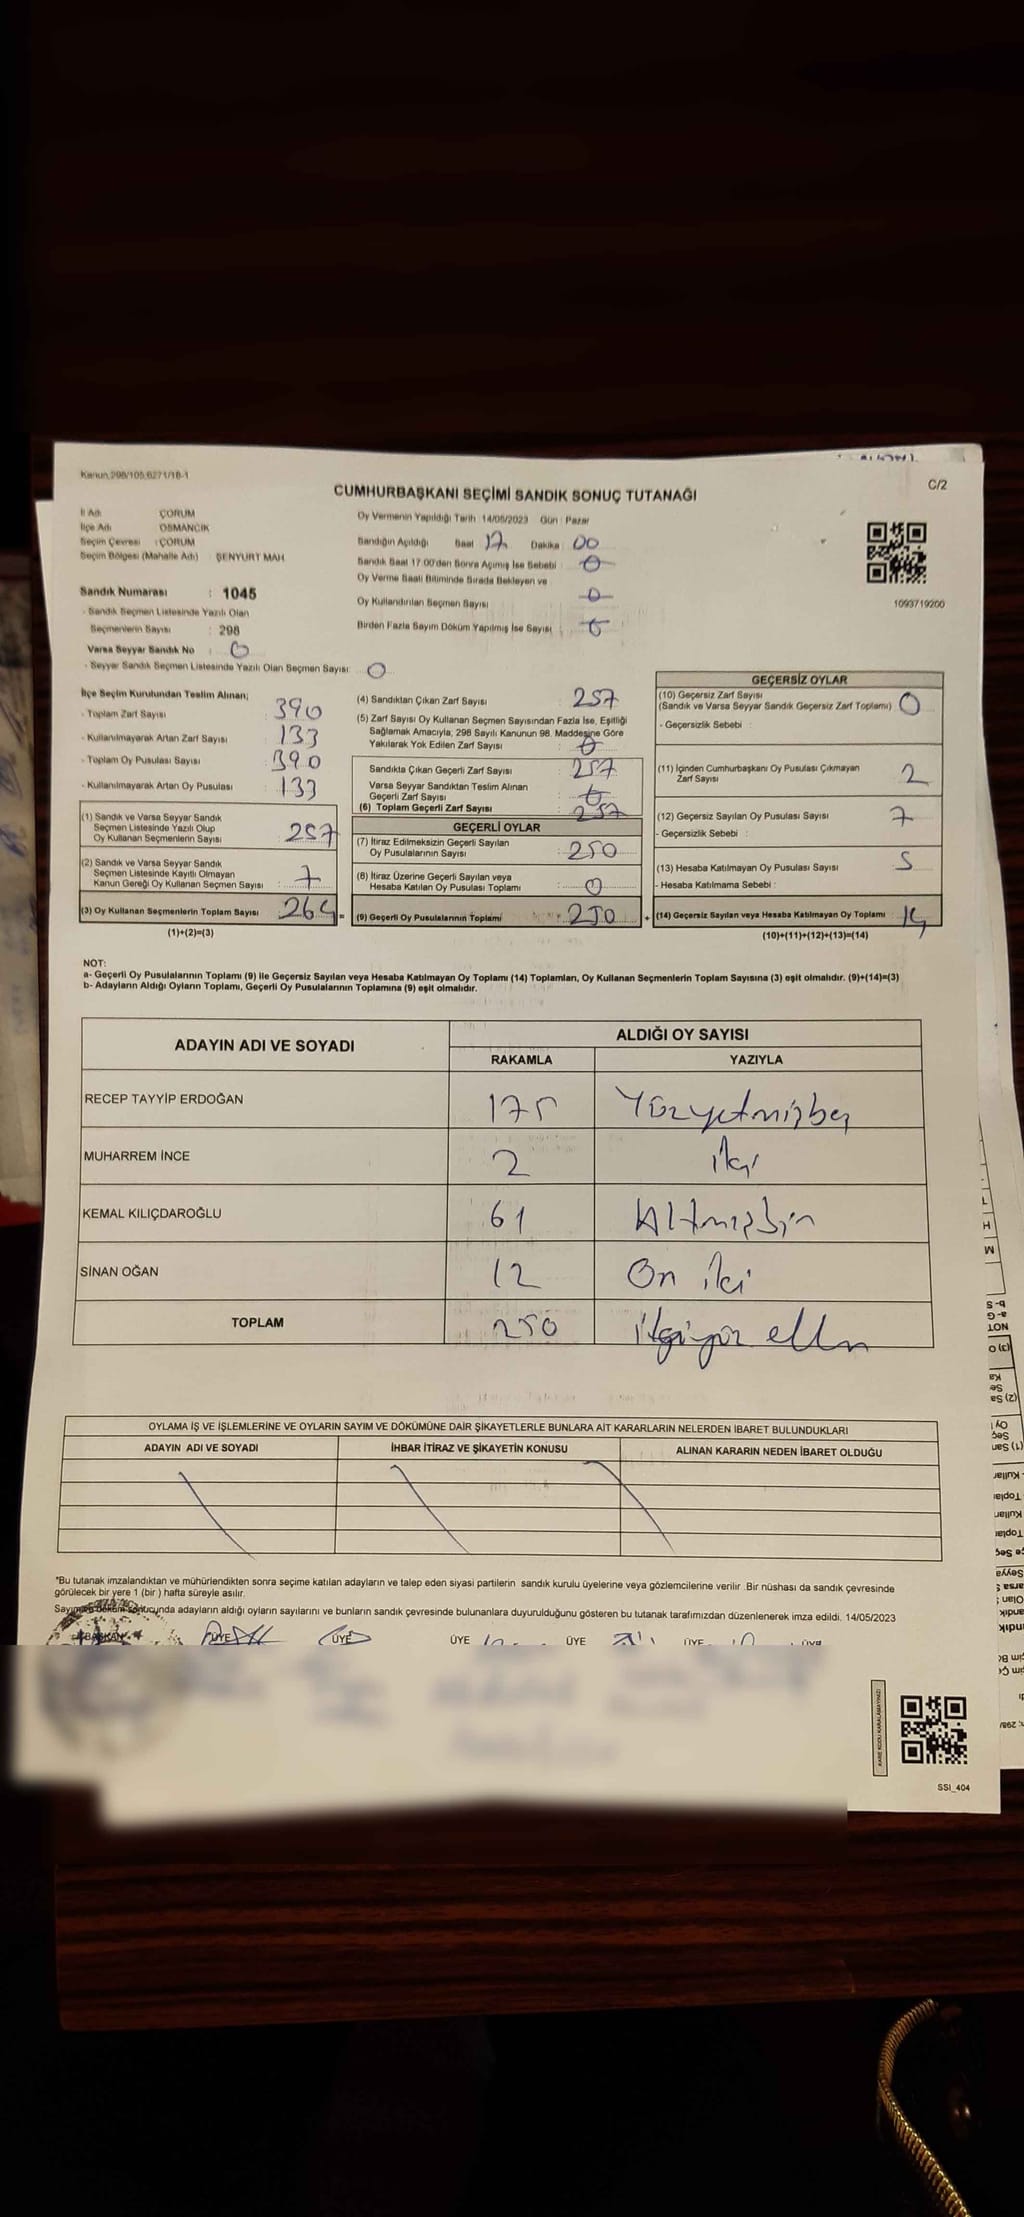 Kanun.298/105,6271/18-1
C/2
CUMHURBAŞKANI SEÇİMİ SANDIK SONUÇ TUTANAĞI
İl Adı ÇORUM
İlçe Adı OSMANCIK
Seçim Çevresi : ÇORUM
Seçim Bölgesi (Mahalle Adı) : ŞENYURT MAH
Sandık Numarası : 1045
- Sandık Seçmen Listesinde Yazılı Olan
Seçmenlerin Sayısı : 298
Varsa Seyyar Sandık No 0
- Seyyar Sandık Seçmen Listesinde Yazılı Olan Seçmen Sayısı: 0
Oy Vermenin Yapıldığı Tarih 14/05/2023 Gün : Pazar
Sandığın Açıldığı Saat 17 Dakika 00
Sandık Saat 17.00'den Sonra Açımış İse Sebebi : 0
Oy Verme Saati Bitiminde Sırada Bekleyen ve
Oy Kullandırılan Seçmen Sayısı 0
Birden Fazla Sayım Döküm Yapılmış İse Sayısı 0
1093719200
İlçe Seçim Kurulundan Teslim Alınan;
- Toplam Zarf Sayısı : 390
- Kullanılmayarak Artan Zarf Sayısı : 133
- Toplam Oy Pusulası Sayısı : 390
- Kullanılmayarak Artan Oy Pusulası : 133
(1) Sandık ve Varsa Seyyar Sandık
Seçmen Listesinde Yazılı Olup
Oy Kullanan Seçmenlerin Sayısı : 257
(2) Sandık ve Varsa Seyyar Sandık
Seçmen Listesinde Kayıtlı Olmayan
Kanun Gereği Oy Kullanan Seçmen Sayısı : 7
(3) Oy Kullanan Seçmenlerin Toplam Sayısı : 264 =
(1)+(2)=(3)
(4) Sandıktan Çıkan Zarf Sayısı : 257
(5) Zarf Sayısı Oy Kullanan Seçmen Sayısından Fazla İse, Eşitliği
Sağlamak Amacıyla, 298 Sayılı Kanunun 98. Maddesine Göre
Yakılarak Yok Edilen Zarf Sayısı : 0
Sandıkta Çıkan Geçerli Zarf Sayısı : 257
Varsa Seyyar Sandıktan Teslim Alınan
Geçerli Zarf Sayısı : 0
(6) Toplam Geçerli Zarf Sayısı : 257
GEÇERLİ OYLAR
(7) İtiraz Edilmeksizin Geçerli Sayılan
Oy Pusulalarının Sayısı : 250
(8) İtiraz Üzerine Geçerli Sayılan veya
Hesaba Katılan Oy Pusulası Toplamı : 0
(9) Geçerli Oy Pusulalarının Toplamı : 250 +
GEÇERSİZ OYLAR
(10) Geçersiz Zarf Sayısı
(Sandık ve Varsa Seyyar Sandık Geçersiz Zarf Toplamı) : 0
- Geçersizlik Sebebi :
(11) İçinden Cumhurbaşkanı Oy Pusulası Çıkmayan
Zarf Sayısı : 2
(12) Geçersiz Sayılan Oy Pusulası Sayısı : 7
- Geçersizlik Sebebi :
(13) Hesaba Katılmayan Oy Pusulası Sayısı : 5
- Hesaba Katılmama Sebebi :
(14) Geçersiz Sayılan veya Hesaba Katılmayan Oy Toplamı : 14
(10)+(11)+(12)+(13)=(14)
NOT:
a- Geçerli Oy Pusulalarının Toplamı (9) ile Geçersiz Sayılan veya Hesaba Katılmayan Oy Toplamı (14) Toplamları, Oy Kullanan Seçmenlerin Toplam Sayısına (3) eşit olmalıdır. (9)+(14)=(3)
b- Adayların Aldığı Oyların Toplamı, Geçerli Oy Pusulalarının Toplamına (9) eşit olmalıdır.
ADAYIN ADI VE SOYADI ALDIĞI OY SAYISI
RAKAMLA YAZIYLA
RECEP TAYYİP ERDOĞAN 175 Yüzyetmişbeş
MUHARREM İNCE 2 iki
KEMAL KILIÇDAROĞLU 61 Altmışbir
SİNAN OĞAN 12 On iki
TOPLAM 250 ikiyüz elli
OYLAMA İŞ VE İŞLEMLERİNE VE OYLARIN SAYIM VE DÖKÜMÜNE DAİR ŞİKAYETLERLE BUNLARA AİT KARARLARIN NELERDEN İBARET BULUNDUKLARI
ADAYIN ADI VE SOYADI İHBAR İTİRAZ VE ŞİKAYETİN KONUSU ALINAN KARARIN NEDEN İBARET OLDUĞU
*Bu tutanak imzalandıktan ve mühürlendikten sonra seçime katılan adayların ve talep eden siyasi partilerin sandık kurulu üyelerine veya gözlemcilerine verilir .Bir nüshası da sandık çevresinde
görülecek bir yere 1 (bir ) hafta süreyle asılır.
Sayım ve döküm sonucunda adayların aldığı oyların sayılarını ve bunların sandık çevresinde bulunanlara duyurulduğunu gösteren bu tutanak tarafımızdan düzenlenerek imza edildi. 14/05/2023
BAŞKAN ÜYE ÜYE ÜYE ÜYE ÜYE ÜYE
SSI_404